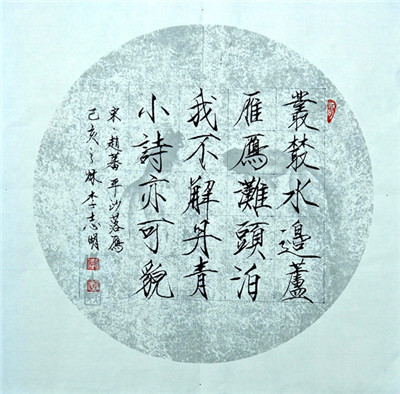 叢叢水邊蘆
雁鴈灘頭泊
我不解丹青
小詩亦可貌
宋、趙蕃平沙落鴈
己亅亥之秋李志明